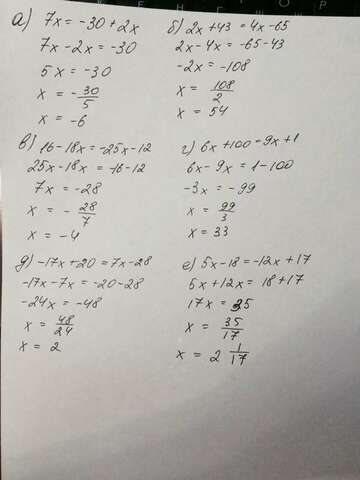 а) 7x = -30 + 2x
7x - 2x = -30
5x = -30
x = -30/5
x = -6
б) 2x + 43 = 4x - 65
2x - 4x = -65 - 43
-2x = -108
x = 108/2
x = 54
в) 16 - 18x = -25x - 12
25x - 18x = -16 - 12
7x = -28
x = -28/7
x = -4
г) 6x + 100 = 9x + 1
6x - 9x = 1 - 100
-3x = -99
x = 99/3
x = 33
д) -17x + 20 = 7x - 28
-17x - 7x = -20 - 28
-24x = -48
x = 48/24
x = 2
е) 5x - 18 = -12x + 17
5x + 12x = 18 + 17
17x = 35
x = 35/17
x = 2 1/17